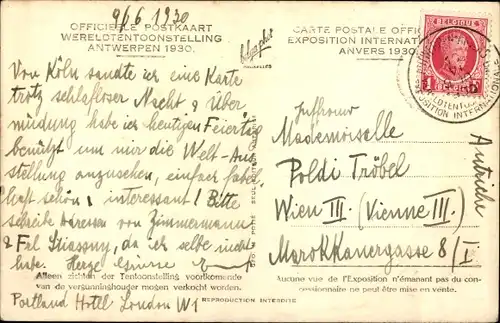 9/6 1930
OFFICIEELE POSTKAART
WERELDTENTOONSTELLING
ANTWERPEN 1930.
Von Köln sandte ich eine Karte
trotz schlafloser Nacht & Über
müdung habe ich heutigen Feiertag
benützt um mir die Welt-Aus
stellung anzusehen, einfach fabel
haft schön & interessant! Bitte
schreibe Adressen von Zimmermann
& Frl Stiassny, da ich selbe nicht
habe. Herzl Grüsse
Alleen zichten der Tentoonstelling voorkomende
van de vergunninghouder mogen verkocht worden.
Portland Hotel London W1
REPRODUCTION INTERDITE
CARTE POSTALE OFFIC
EXPOSITION INTERNATI
ANVERS 1930.
BELGIQUE
EXPOSITION INTERNATIONALE
Mademoiselle
Poldi Tröbel
Wien III. (Vienne III.)
Marokkanergasse 8/I
Autriche
Aucune vue de l'Exposition n'émanant pas du con-
cessionnaire ne peut être mise en vente.